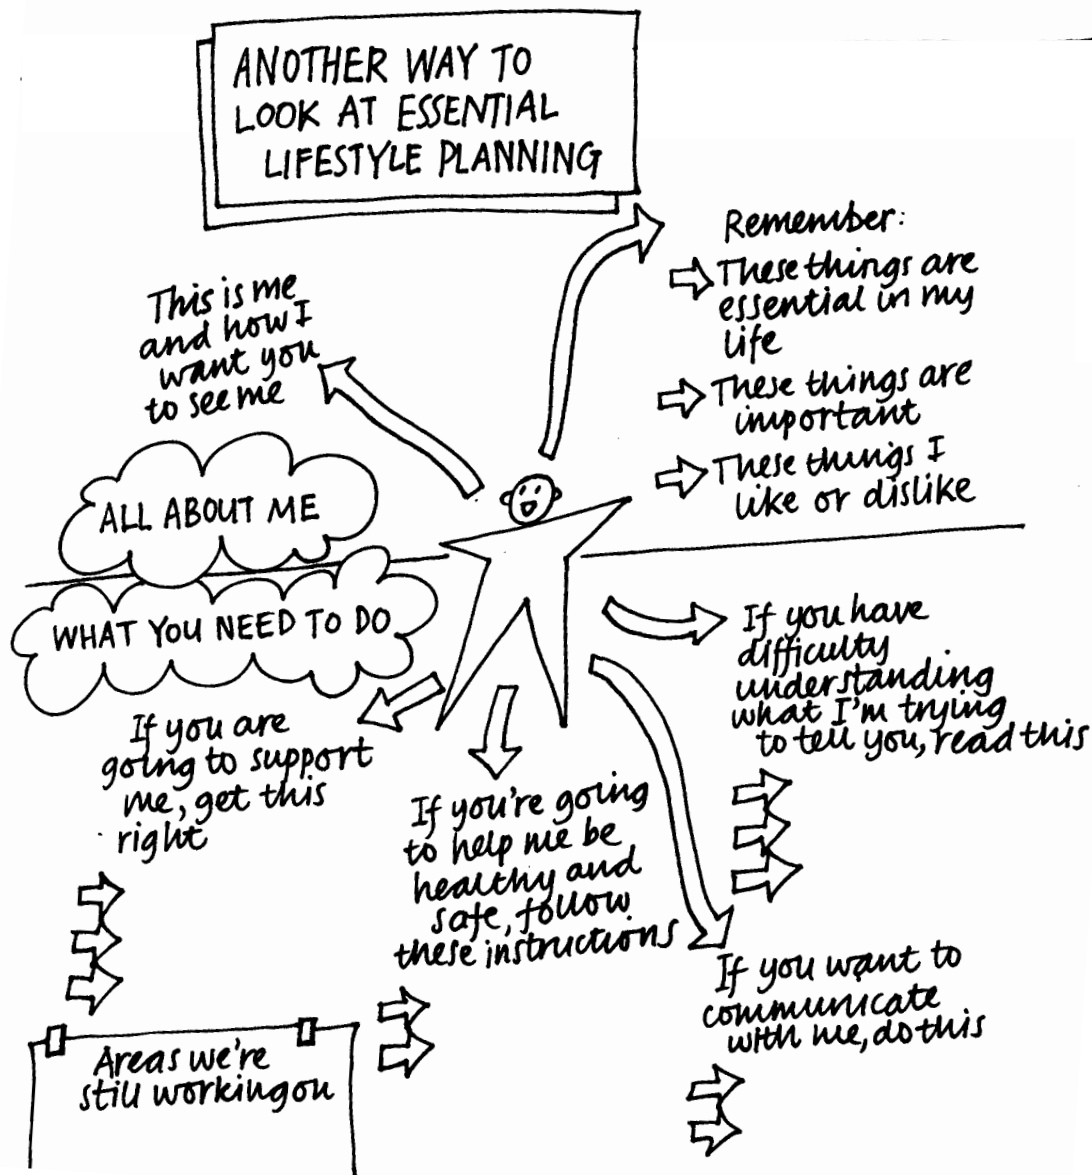 ANOTHER WAY TO
LOOK AT ESSENTIAL
LIFESTYLE PLANNING
This is me
and how I
want you
to see me
Remember:
These things are
essential in my
life
These things are
important
These things I
like or dislike
ALL ABOUT ME
WHAT YOU NEED TO DO
If you are
going to support
me, get this
right
If you're going
to help me be
healthy and
safe, follow
these instructions
If you have
difficulty
understanding
what I'm trying
to tell you, read this
If you want to
communicate
with me, do this
Areas we're
still working on